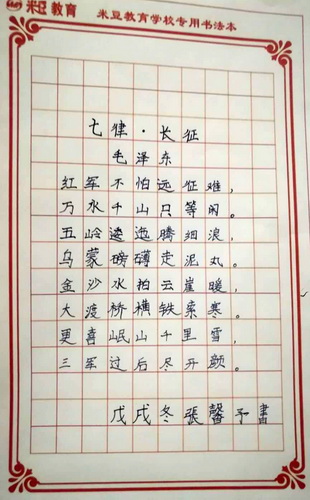 米豆教育 米豆教育学校专用书法本
七律·长征
毛泽东
红军不怕远征难，
万水千山只等闲。
五岭逶迤腾细浪，
乌蒙磅礴走泥丸。
金沙水拍云崖暖，
大渡桥横铁索寒。
更喜岷山千里雪，
三军过后尽开颜。
戊戌冬 張馨予書